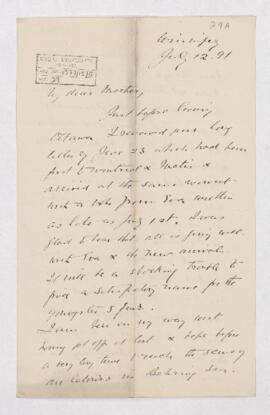 29A
Winnipeg
July 12. 91
My dear Mother,
Just before leaving
Ottawa I received your long
letter of June 23 which had been
first to Montreal & &
arrived at the same moment
with a note from Eva written
as late as July 1st. I was
glad to hear that all is going well
with Eva & the new arrival.
It will be a shocking trouble to
find a satisfactory name for the
youngster I find.
I am here on my way west
having got off at last & hope before
a very long time to reach the
in Behring Sea.